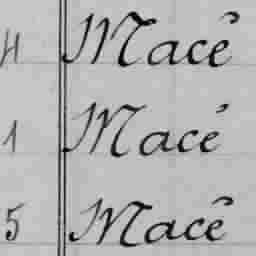 4 Macê
1 Macé
5 Macê